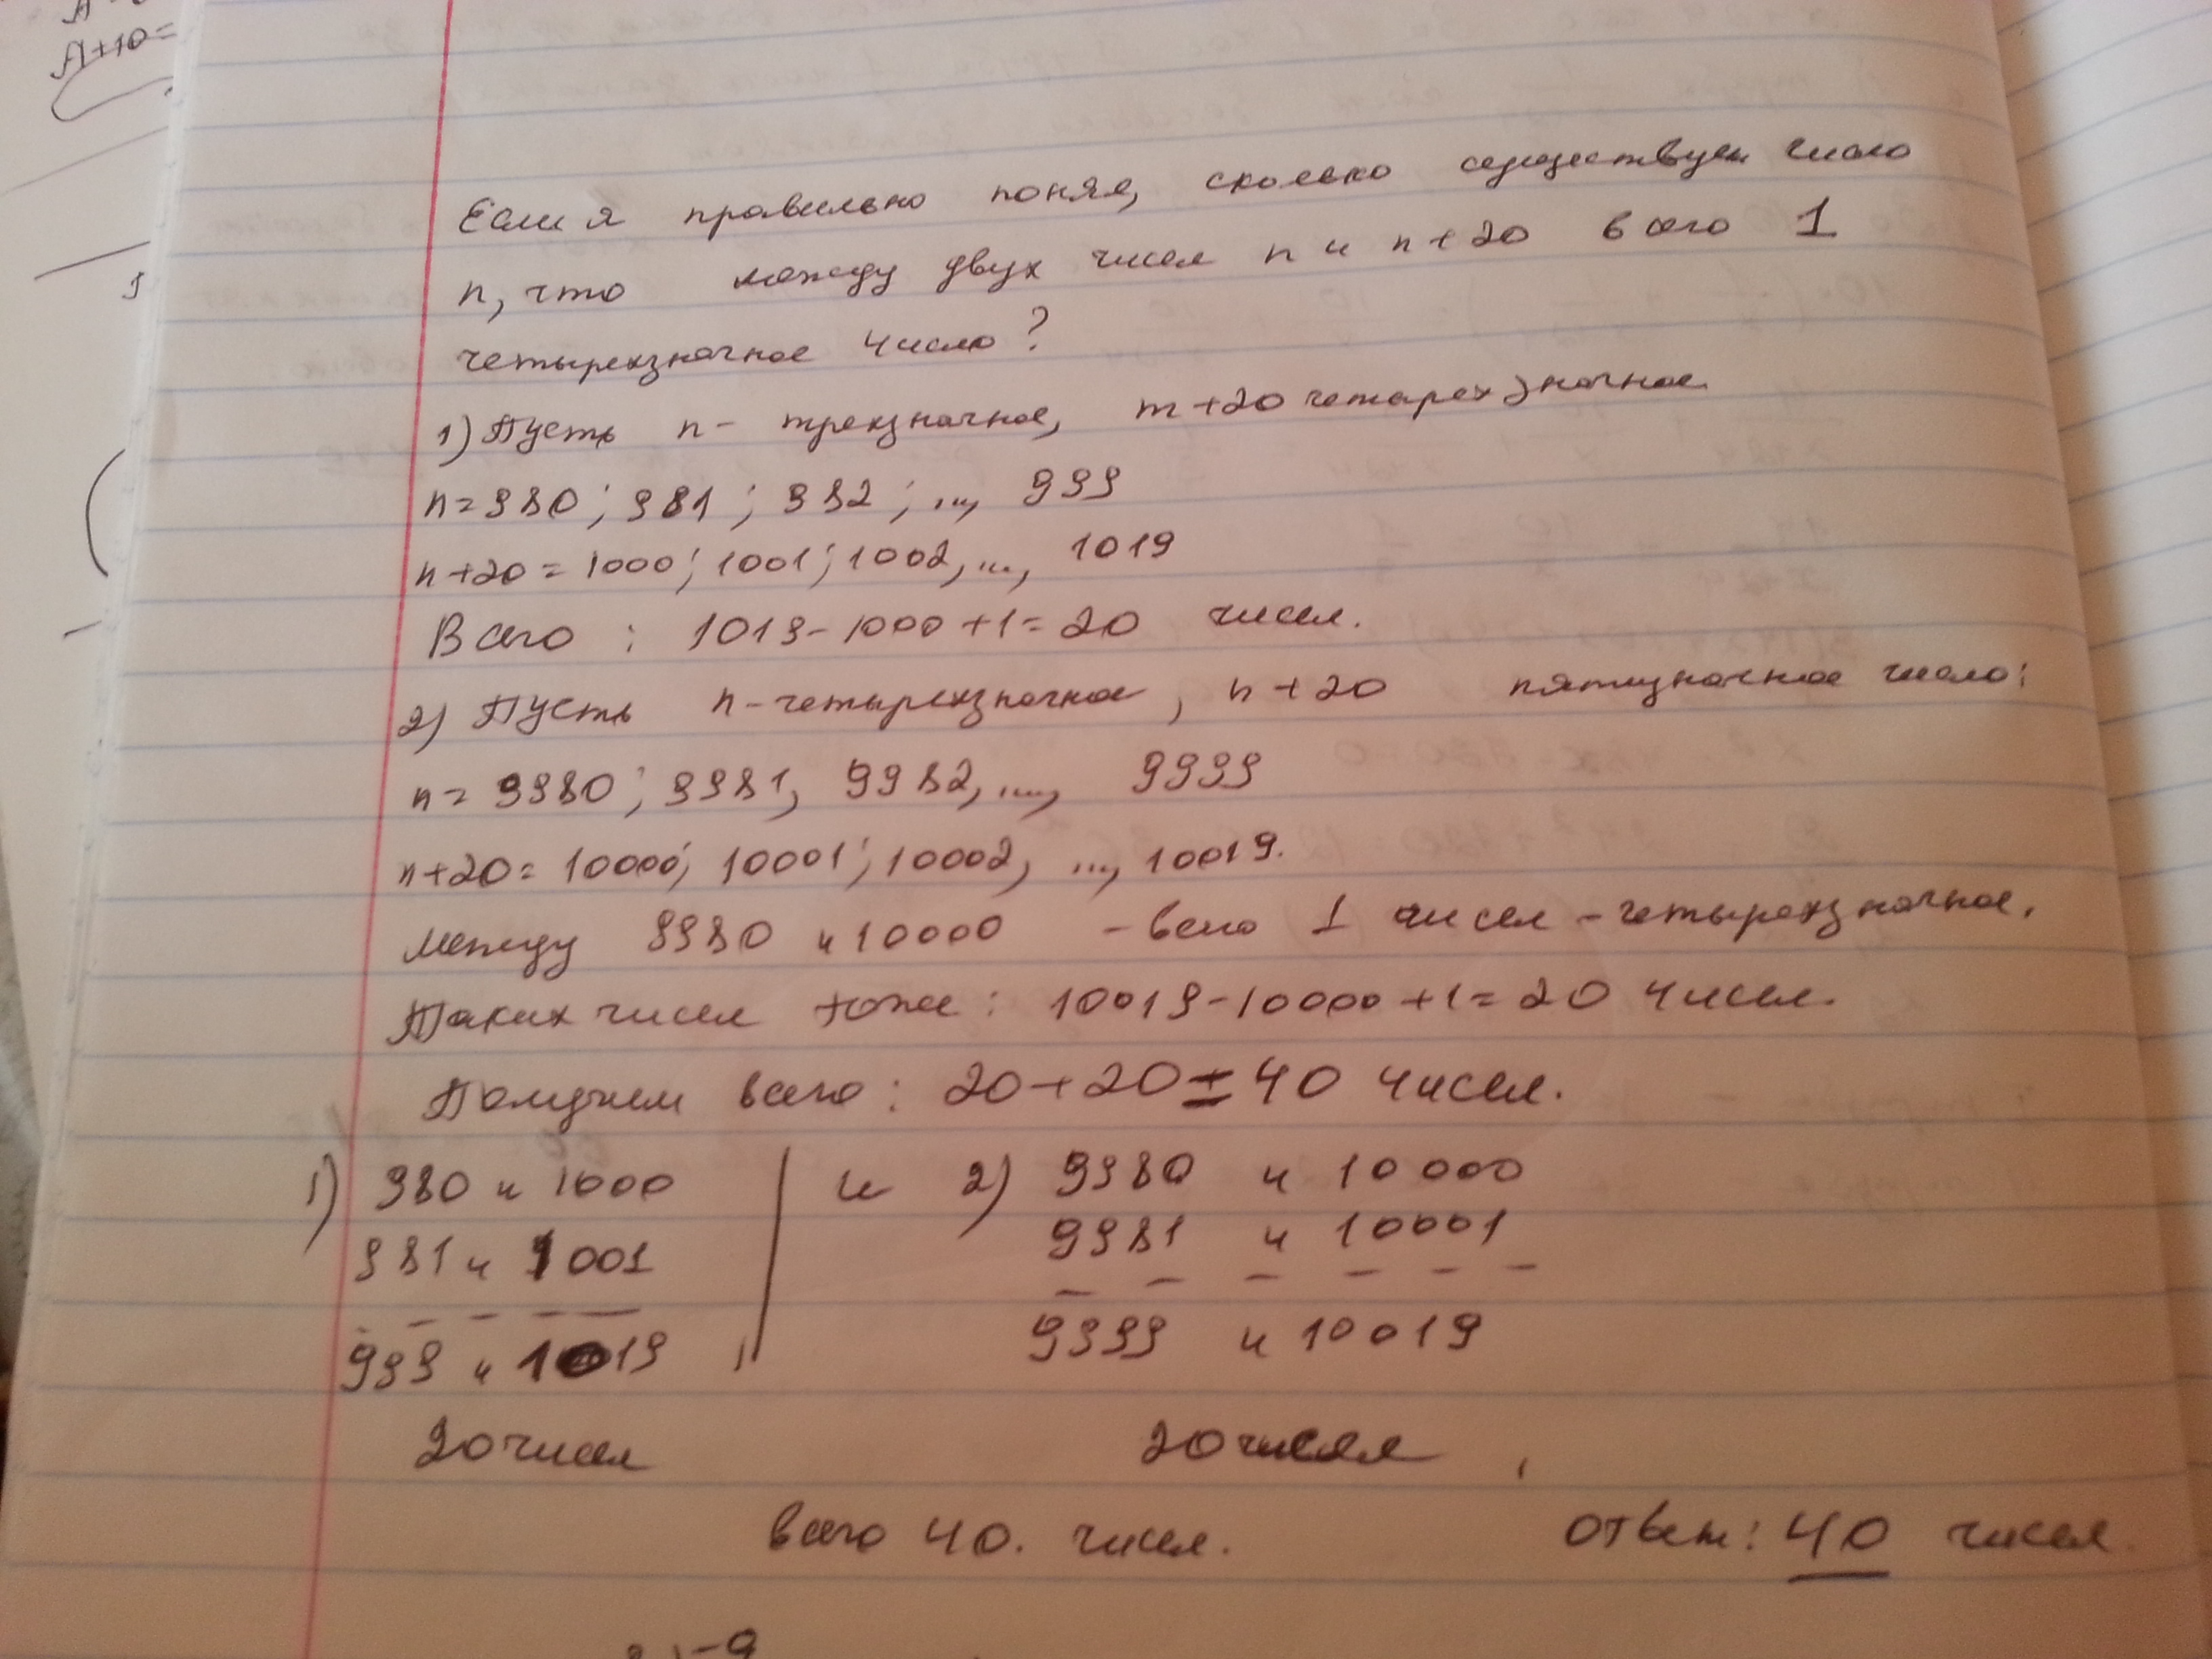 А+10=
Если я правильно понял, сколько существуем число
n, что между двух чисел n и n+20 всего 1
четырехзначное число?
1) Пусть n - трехзначное, m+20 четарехзначное.
n=980; 981; 982; ..., 999
n+20=1000; 1001; 1002, ..., 1019
Всего : 1019-1000+1=20 чисел.
2) Пусть n-четырехзначное, n+20 пятизначное число:
n= 9980; 9981, 9982, ...., 9999
n+20= 10000; 10001; 10002, ..., 10019.
Между 9980 и 10000 - всего 1 чисел - четырехзначное.
Таких чисел тоже: 10019-10000+1=20 чисел.
Получим всего: 20+20=40 чисел.
1) 980 и 1000 и 2) 9980 и 10000
981 и 1001 9981 и 10001
999 и 1019 9999 и 10019
20 чисел 20 чисел,
всего 40. чисел. Ответ: 40 чисел